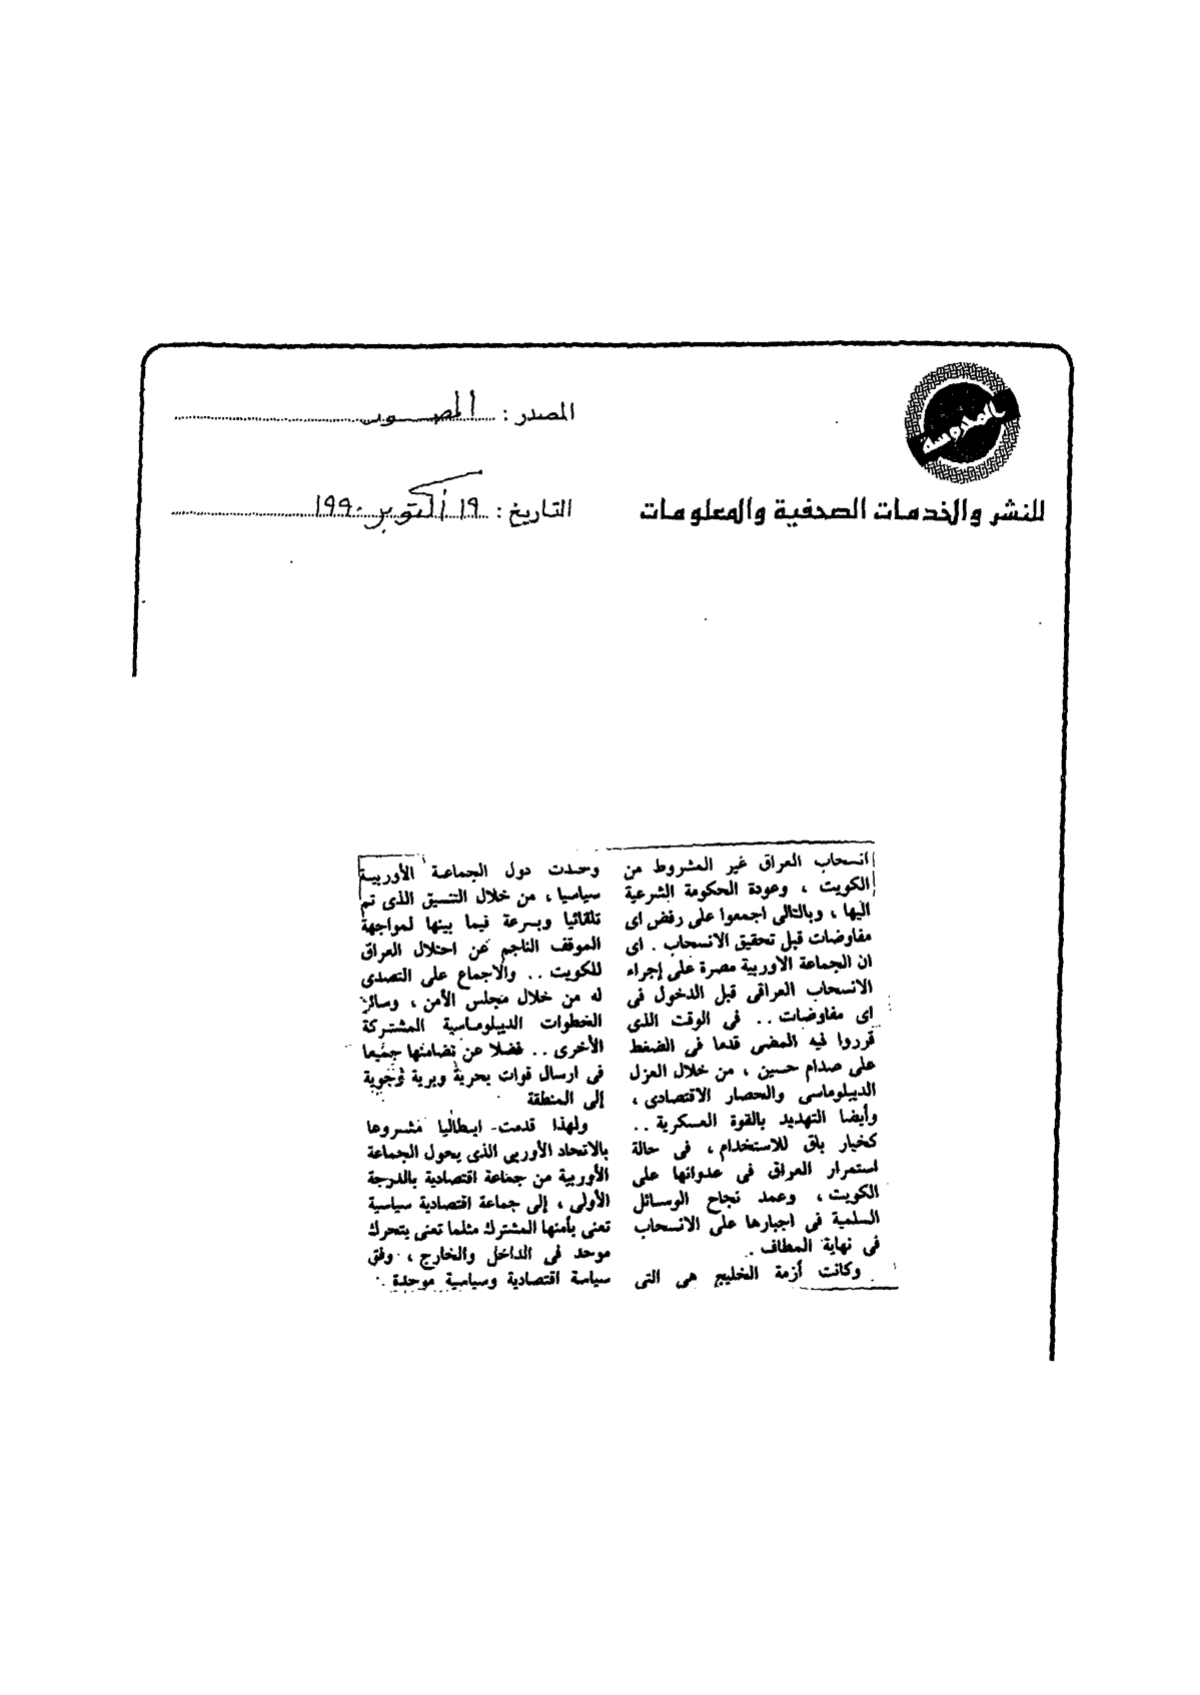 المصدر : المصور
التاريخ : ١٩ أكتوبر ١٩٩٠
للنشر والخدمات الصحفية والمعلومات
انسحاب العراق غير المشروط من
الكويت ، وعودة الحكومة الشرعية
اليها ، وبالتالى اجمعوا على رفض اى
مفاوضات قبل تحقيق الانسحاب . اى
ان الجماعة الاوربية مصرة على إجراء
الانسحاب العراقى قبل الدخول فى
اى مفاوضات .. فى الوقت الذى
قرروا فيه المضى قدما فى الضغط
على صدام حسين ، من خلال العزل
الديبلوماسى والحصار الاقتصادى ،
وأيضا التهديد بالقوة العسكرية ..
كخيار باق للاستخدام ، فى حالة
استمرار العراق فى عدوانها على
الكويت ، وعمد نجاح الوسائل
السلمية فى اجبارها على الانسحاب
فى نهاية المطاف .
وكانت أزمة الخليج هى التى
وحدت دول الجماعة الأوربية
سياسيا ، من خلال التنسيق الذى تم
تلقائيا وبسرعة فيما بينها لمواجهة
الموقف الناجم عن احتلال العراق
للكويت .. والاجماع على التصدى
له من خلال مجلس الأمن ، وسائر
الخطوات الديبلوماسية المشتركة
الأخرى .. فضلا عن تضامنها جميعا
فى ارسال قوات بحرية وبرية وجوية
إلى المنطقة
ولهذا قدمت ايطاليا مشروعا
بالاتحاد الأوربى الذى يحول الجماعة
الأوربية من جماعة اقتصادية بالدرجة
الأولى ، إلى جماعة اقتصادية سياسية
تعنى بأمنها المشترك مثلما تعنى يتحرك
موحد فى الداخل والخارج ، وفق
سياسة اقتصادية وسياسية موحدة .